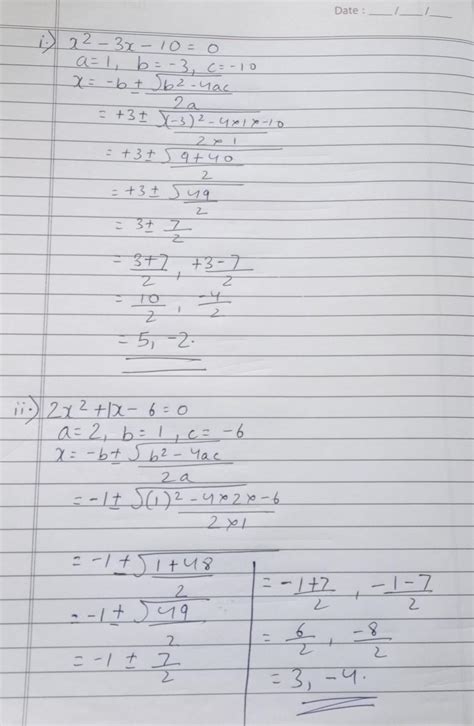 Date : ___/___/___
i.) x² - 3x - 10 = 0
a = 1, b = -3, c = -10
x = -b ± √b² - 4ac
2a
= +3 ± √(-3)² - 4×1×-10
2×1
= +3 ± √9+40
2
= +3 ± √49
2
= 3 ± 7
2
= 3+7 , +3-7
2 2
= 10 , -4
2 2
= 5, -2.
ii.) 2x² + 1x - 6 = 0
a = 2, b = 1, c = -6
x = -b ± √b² - 4ac
2a
= -1 ± √(1)² - 4×2×-6
2×1
= -1 ± √1+48
2
= -1 ± √49
2
= -1 ± 7
2
= -1+7 , -1-7
2 2
= 6 , -8
2 2
= 3, -4.